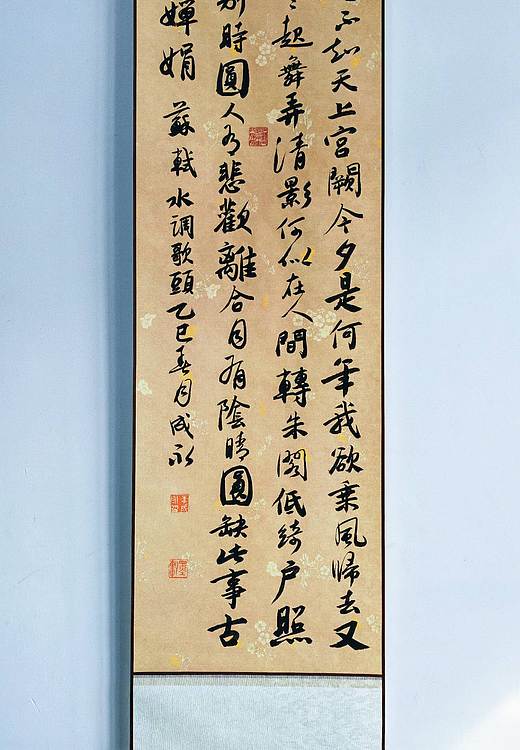 不知天上宮闕今夕是何年我欲乘風歸去又
起舞弄清影何似在人間轉朱閣低綺户照
别時圓人有悲歡離合月有陰晴圓缺此事古
嬋娟 蘇軾水调歌頭乙巳春月成永